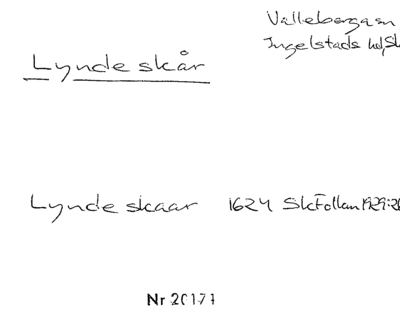 Vallebergasn
Ingelstads hd, Sk
Lyndeskår
Lyndeskaar 1624 SkFollm 1929:26
Nr 20171